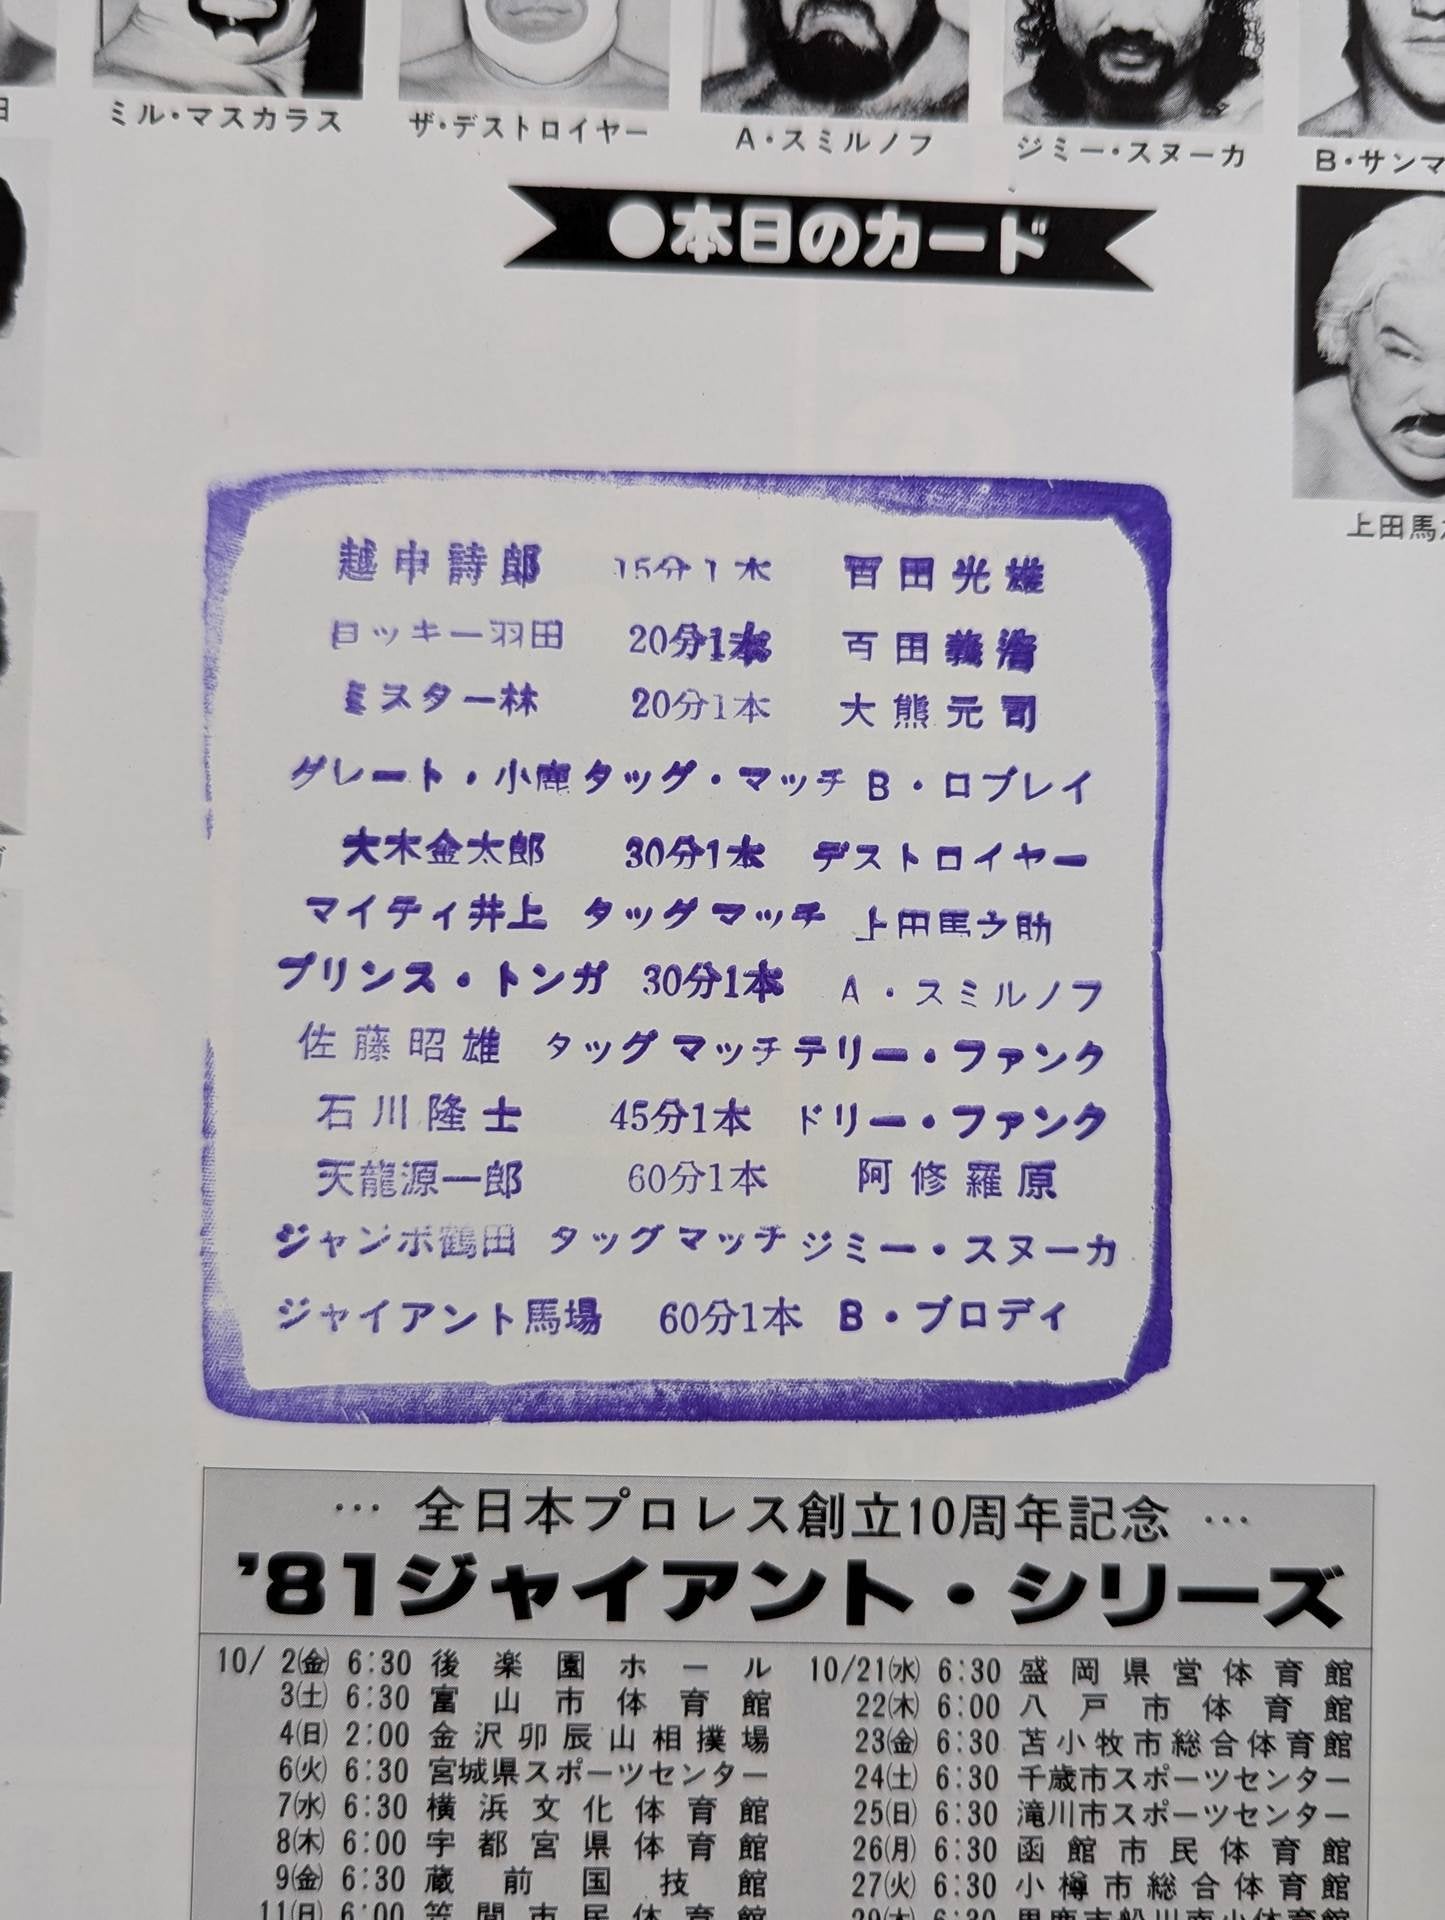 ミル・マスカラス
ザ・デストロイヤー
A・スミルノフ
ジミー・スヌーカ
B・サンマ
●本日のカード
上田馬
越中詩郎 15分1本 百田光雄
ロッキー羽田 20分1本 百田義浩
ミスター林 20分1本 大熊元司
グレート・小鹿 タッグ・マッチ B・ロブレイ
大木金太郎 30分1本 デストロイヤー
マイティ井上 タッグマッチ 上田馬之助
プリンス・トンガ 30分1本 A・スミルノフ
佐藤昭雄 タッグマッチ テリー・ファンク
石川隆士 45分1本 ドリー・ファンク
天龍源一郎 60分1本 阿修羅原
ジャンボ鶴田 タッグマッチ ジミー・スヌーカ
ジャイアント馬場 60分1本 B・ブロディ
… 全日本プロレス創立10周年記念 …
'81ジャイアント・シリーズ
10/2(金) 6:30 後楽園ホール
3(土) 6:30 富山市体育館
4(日) 2:00 金沢卯辰山相撲場
6(火) 6:30 宮城県スポーツセンター
7(水) 6:30 横浜文化体育館
8(木) 6:00 宇都宮県体育館
9(金) 6:30 蔵前国技館
11(日) 6:00 笠間市民体育館
10/21(水) 6:30 盛岡県営体育館
22(木) 6:00 八戸市体育館
23(金) 6:30 苫小牧市総合体育館
24(土) 6:30 千歳市スポーツセンター
25(日) 6:30 滝川市スポーツセンター
26(月) 6:30 函館市民体育館
27(火) 6:30 小樽市総合体育館
29(木) 6:30 男鹿市船川南小体育館